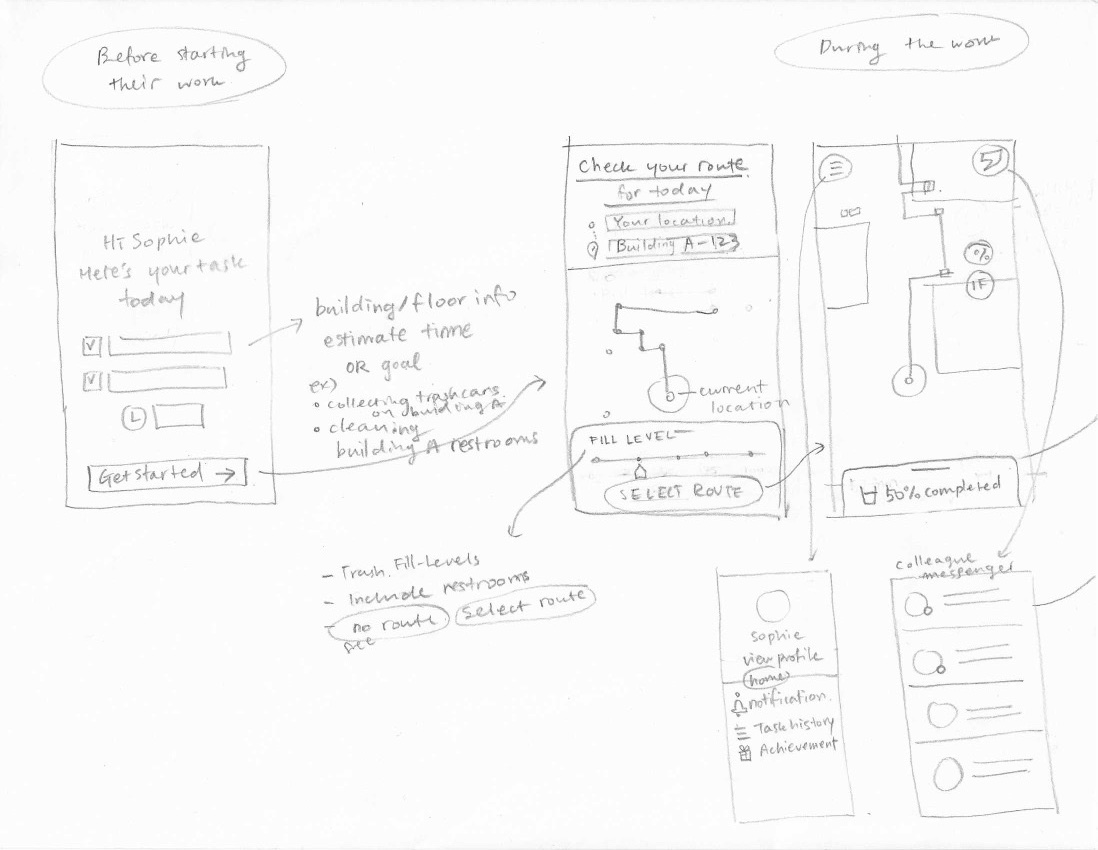 Before starting
their work
During the work
Hi Sophie
Here's your task
today
Get started →
building/floor info
estimate time
OR goal
ex)
• collecting trashcans
on building A
• cleaning
building A restrooms
Check your route
for today
Your location
Building A-123
current
location
FILL LEVEL
SELECT ROUTE
- Trash Fill-Levels
- Include restrooms
- no route
see
select route
%
1F
50% completed
Sophie
view profile
home
notification
Task history
Achievement
colleague
messenger